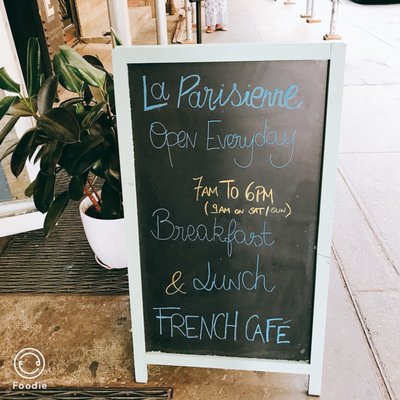 La Parisienne
Open Everyday
7AM TO 6PM
(9AM ON SAT/SUN)
Breakfast
& Lunch
FRENCH CAFÉ
Foodie